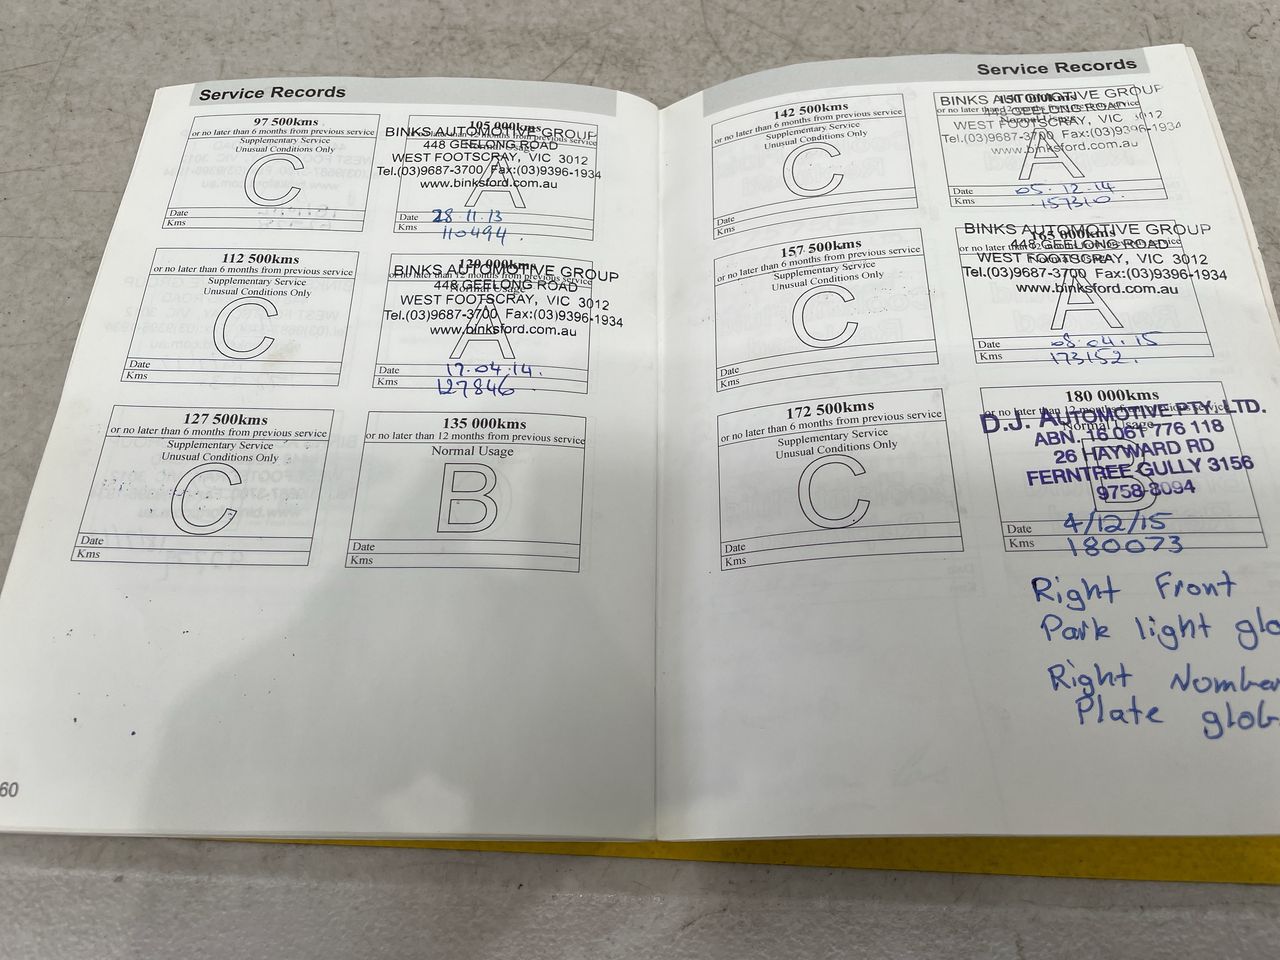 Service Records
97 500kms
or no later than 6 months from previous service
Supplementary Service
Unusual Conditions Only
C
Date
Kms
105 000kms
BINKS AUTOMOTIVE GROUP
448 GEELONG ROAD
WEST FOOTSCRAY, VIC 3012
Tel.(03)9687-3700 Fax:(03)9396-1934
www.binksford.com.au
A
Date 28.11.13
Kms 110494.
112 500kms
or no later than 6 months from previous service
Supplementary Service
Unusual Conditions Only
C
Date
Kms
120 000kms
or no later than 12 months from previous service
BINKS AUTOMOTIVE GROUP
Normal Usage
448 GEELONG ROAD
WEST FOOTSCRAY, VIC 3012
Tel.(03)9687-3700 Fax:(03)9396-1934
www.binksford.com.au
A
Date 17.04.14.
Kms 127846.
127 500kms
or no later than 6 months from previous service
Supplementary Service
Unusual Conditions Only
C
Date
Kms
135 000kms
or no later than 12 months from previous service
Normal Usage
B
Date
Kms
60
Service Records
142 500kms
or no later than 6 months from previous service
Supplementary Service
Unusual Conditions Only
C
Date
Kms
150 000kms
BINKS AUTOMOTIVE GROUP
448 GEELONG ROAD
WEST FOOTSCRAY, VIC 3012
Tel.(03)9687-3700 Fax:(03)9396-1934
www.binksford.com.au
A
Date 05.12.14
Kms 157310.
157 500kms
or no later than 6 months from previous service
Supplementary Service
Unusual Conditions Only
C
Date
Kms
165 000kms
BINKS AUTOMOTIVE GROUP
448 GEELONG ROAD
WEST FOOTSCRAY, VIC 3012
Tel.(03)9687-3700 Fax:(03)9396-1934
www.binksford.com.au
A
Date 08.04.15
Kms 173152.
172 500kms
or no later than 6 months from previous service
Supplementary Service
Unusual Conditions Only
C
Date
Kms
180 000kms
or no later than 12 months from previous service
D.J. AUTOMOTIVE PTY. LTD.
Normal Usage
ABN. 16 061 776 118
26 HAYWARD RD
FERNTREE GULLY 3156
9758-8094
B
Date 4/12/15
Kms 180073
Right Front
Park light glo
Right Number
Plate glob